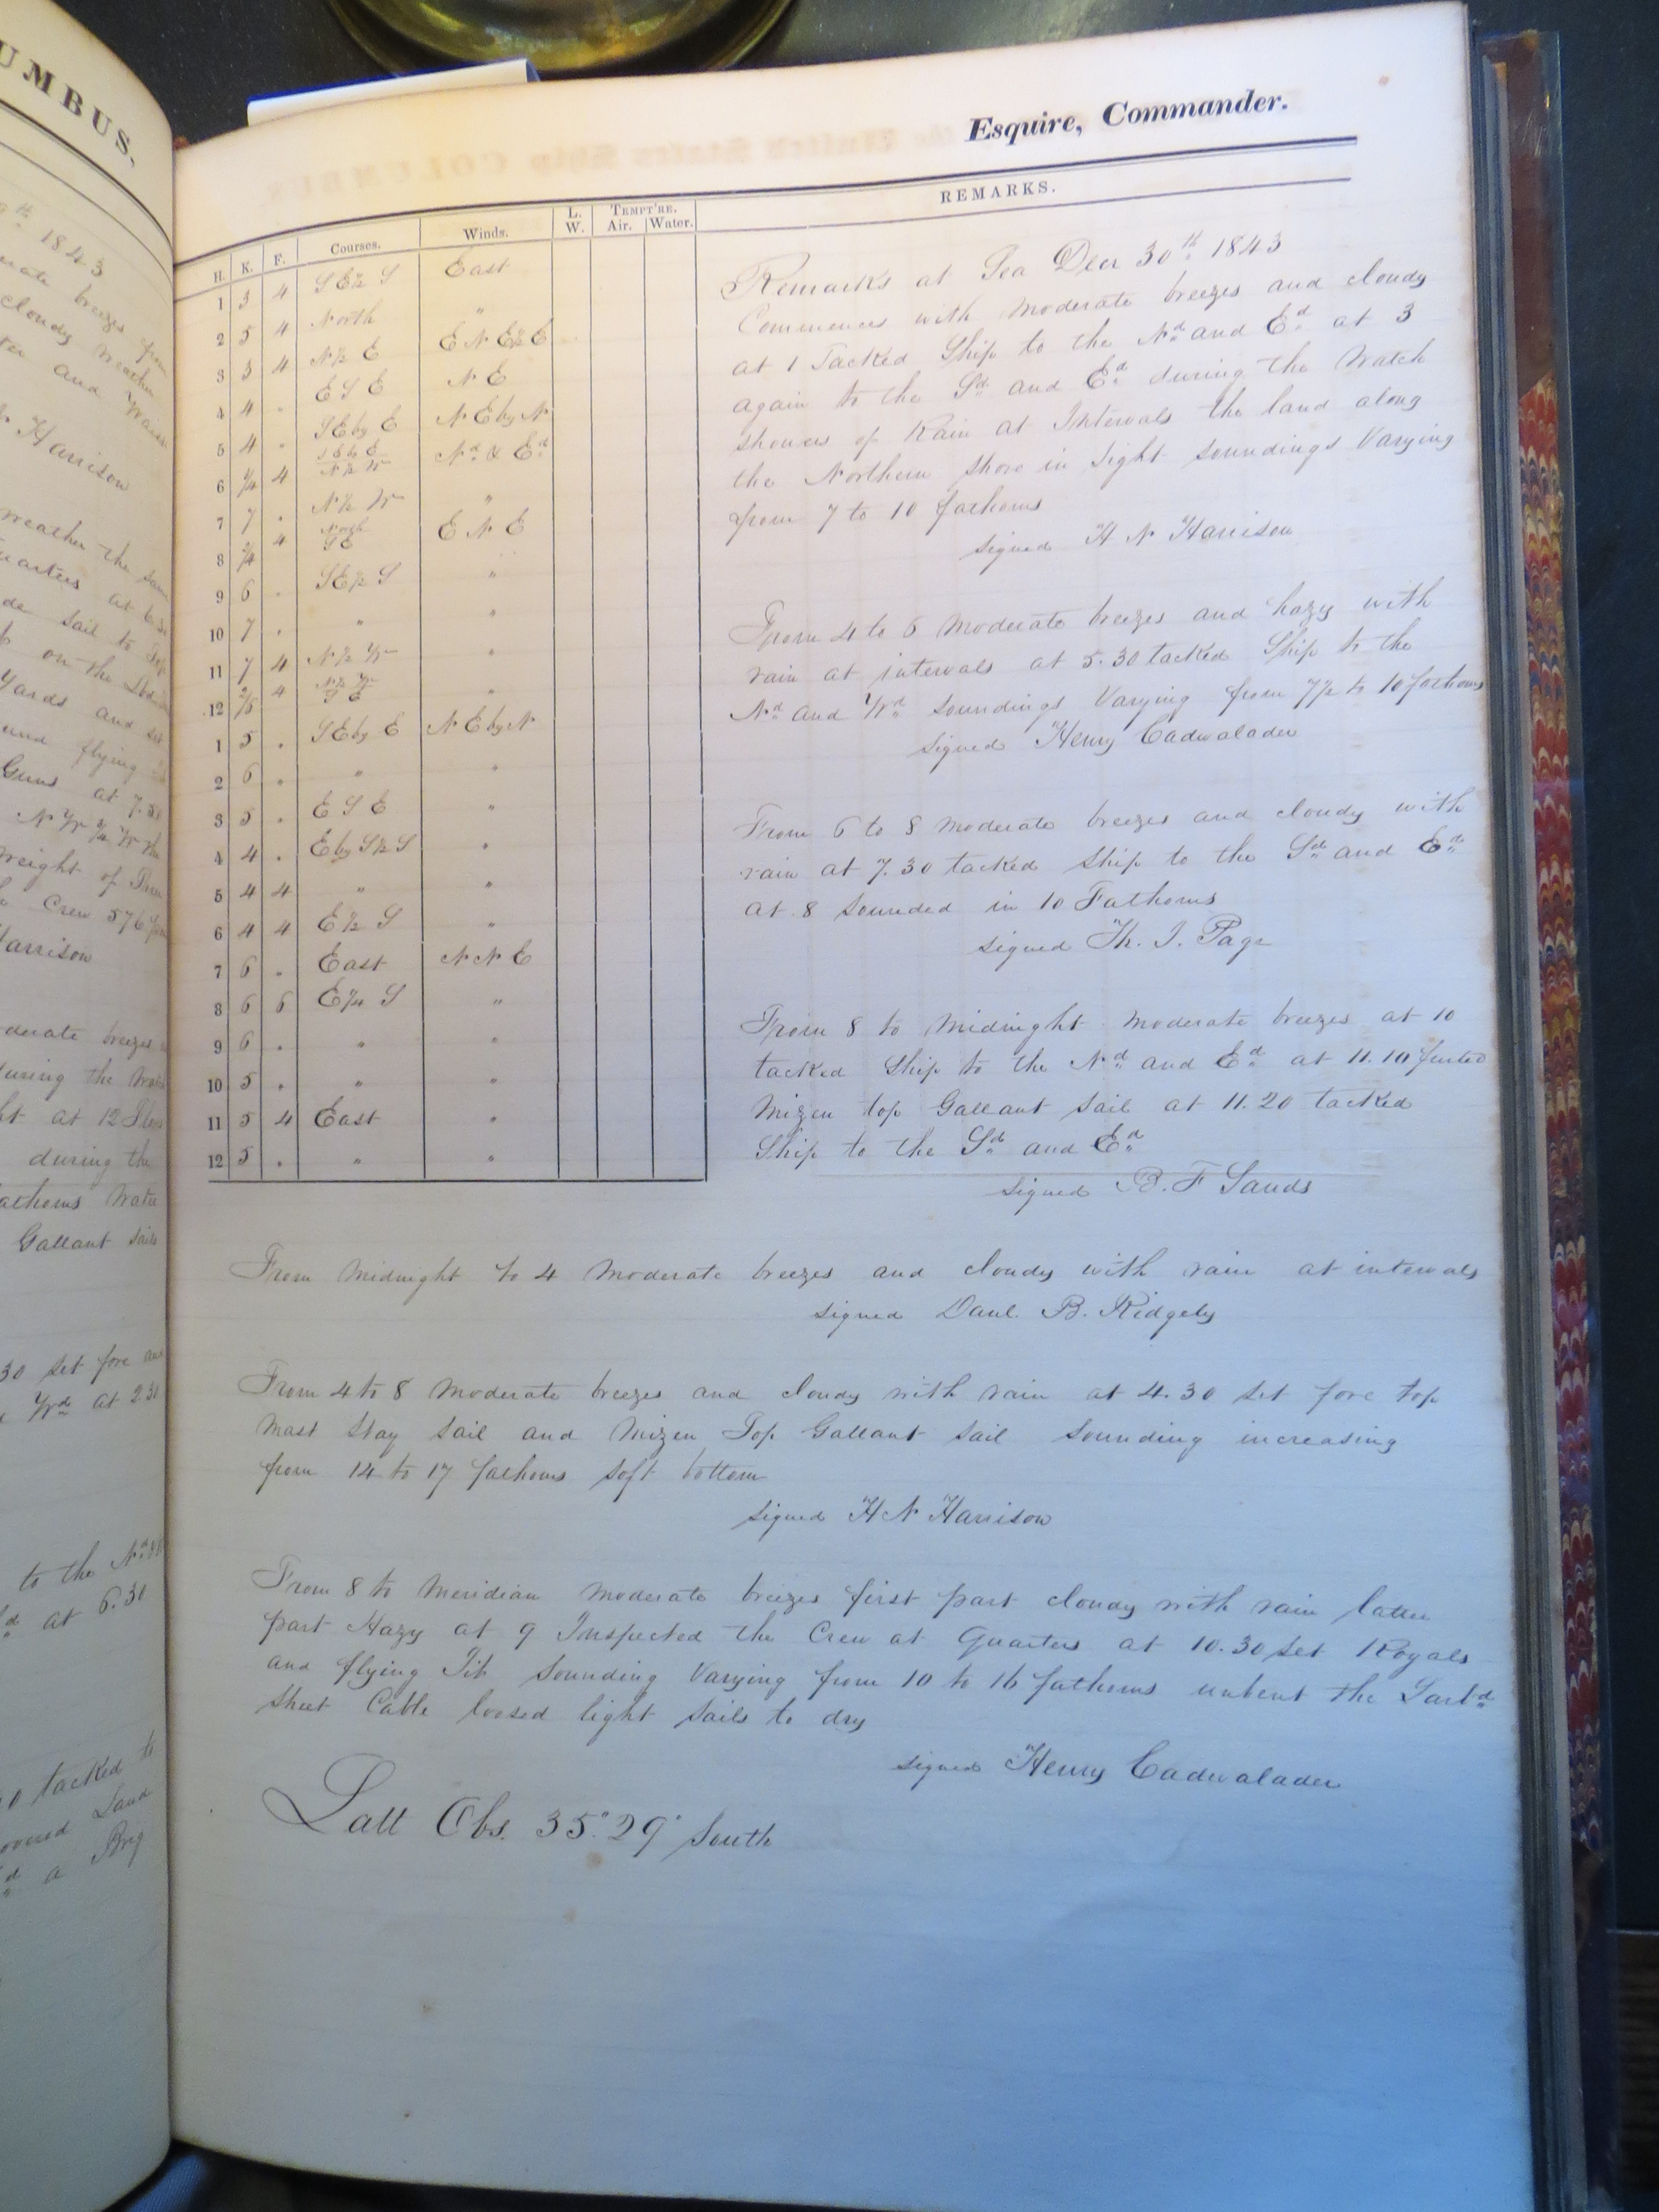 UMBUS.
th 1843
breezes from
cloudy weather
and
Harrison
weather the
quarters at 6.30
sail to
on the
Yards and set
and flying
Guns at 7.30
weight of
Crew 576
Harrison
moderate breezes
during the
at 12
during the
fathoms water
Gallant sails
30 set fore and
Wd at 2 30
to the Nd
d at 6.30
tacked to
Land
d a Brig
Esquire, Commander.
REMARKS.
H. K. F. Courses. Winds. L. W. TEMPT'RE. Air. Water.
1 3 4 SE½ S East
2 5 4 North "
3 3 4 N½ E E N E½ E
4 4 " E S E N E
5 4 " SE by E N E by N
6 ¼ 4 SE by E N½ W Nd & Ed
7 7 " N½ W "
8 ¾ 4 North SE E N E
9 6 " SE½ S "
10 7 " " "
11 7 4 N½ W "
12 2/5 4 N½ W S E "
1 5 " SE by E N E by N
2 6 " " "
3 5 " E S E "
4 4 " E by S½ S "
5 4 4 " "
6 4 4 E½ S "
7 6 " East N N E
8 6 6 E¼ S "
9 6 " " "
10 5 " " "
11 5 4 East "
12 5 " " "
Remarks at Sea Decr 30th 1843
Commences with moderate breezes and cloudy
at 1 Tacked Ship to the Nd and Ed at 3
again to the Sd and Ed during the Watch
showers of Rain at Intervals the land along
the Northern shore in sight soundings Varying
from 7 to 10 fathoms
signed H N Harrison
From 4 to 6 moderate breezes and hazy with
rain at intervals at 5.30 tacked Ship to the
Nd and Wd soundings Varying from 7½ to 10 fathoms
signed Henry Cadwalader
From 6 to 8 moderate breezes and cloudy with
rain at 7.30 tacked ship to the Sd and Ed
at 8 sounded in 10 Fathoms
signed Th. J. Page
From 8 to midnight moderate breezes at 10
tacked Ship to the Nd and Ed at 11.10 furled
Mizen top Gallant sail at 11.20 tacked
Ship to the Sd and Ed
signed B. F Sands
From Midnight to 4 moderate breezes and cloudy with rain at intervals
signed Danl. B. Ridgely
From 4 to 8 moderate breezes and cloudy with rain at 4.30 set fore top
mast stay sail and Mizen Top Gallant sail sounding increasing
from 14 to 17 fathoms soft bottom
signed H N Harrison
From 8 to Meridian moderate breezes first part cloudy with rain latter
part Hazy at 9 Inspected the Crew at Quarters at 10.30 set Royals
and flying Jib sounding Varying from 10 to 16 fathoms unbent the Larbd
sheet Cable loosed light sails to dry
signed Henry Cadwalader
Latt Obs. 35° 29' South